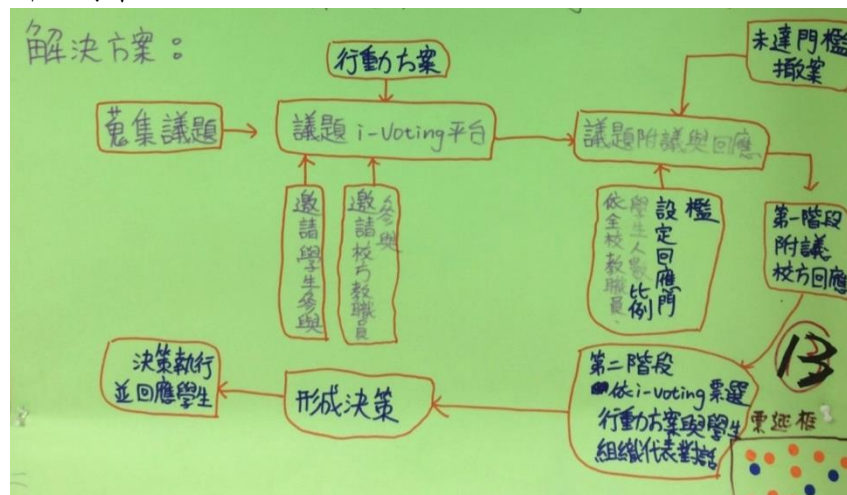 解決方案：
行動方案
未達門檻
撤案
蒐集議題
議題 i-Voting平台
議題附議與回應
邀請學生參與
邀請校方教職員
參與
依全校教職員、
學生人數比例
設定回應門
檻
第一階段
附議
校方回應
13
第二階段
依i-voting票選
行動方案與學生
組織代表對話
形成決策
決策執行
並回應學生
票逛框